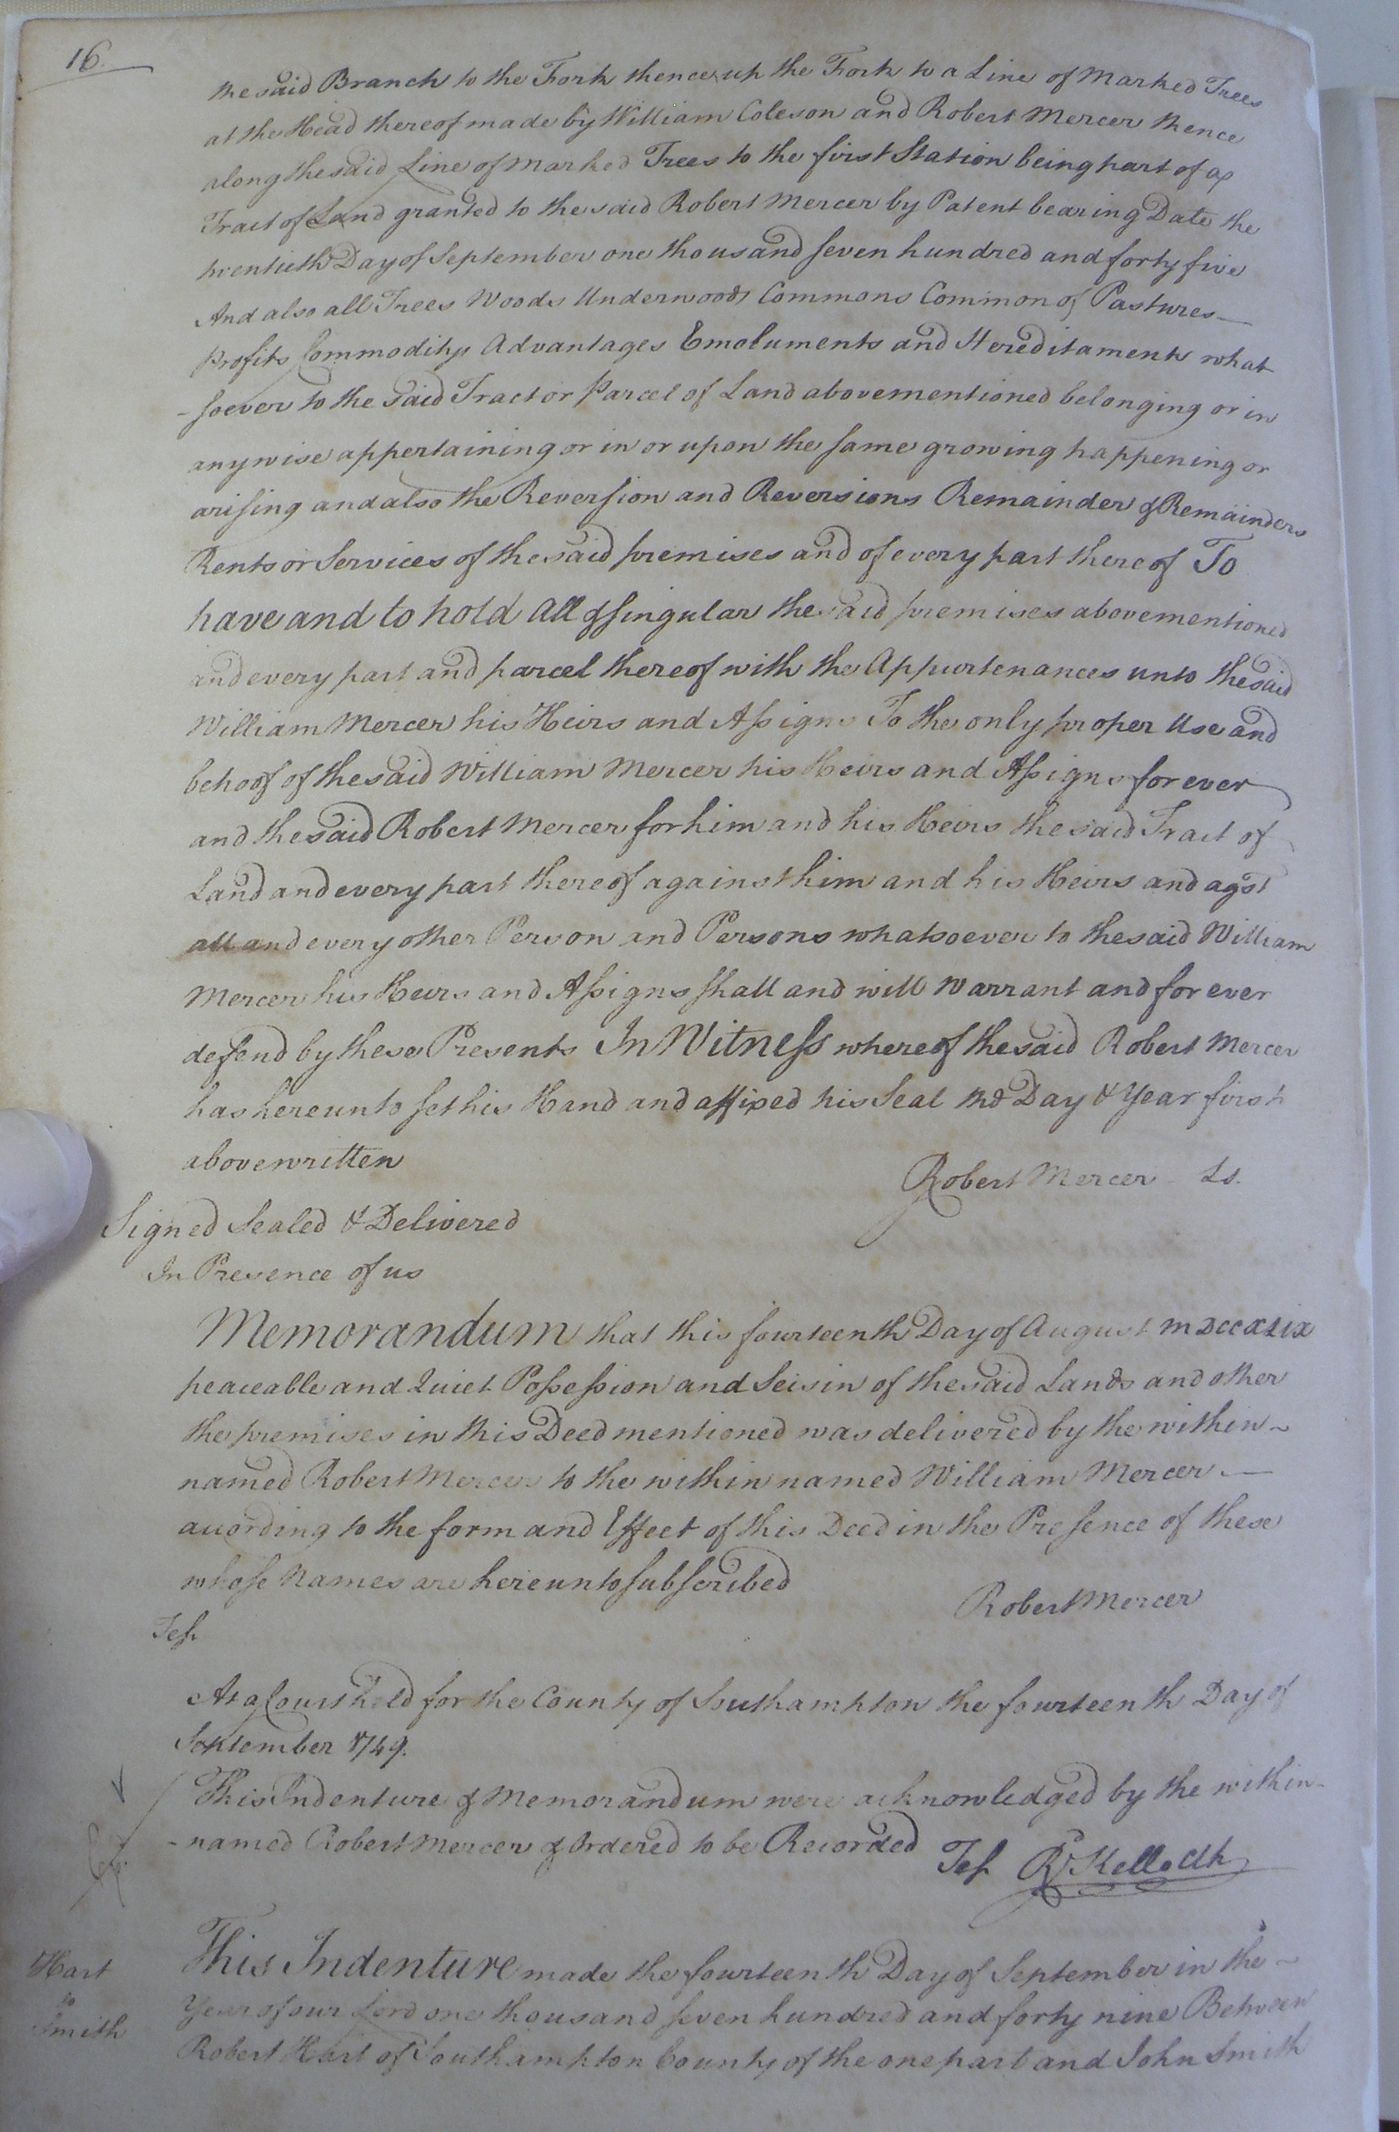 16.
the said Branch to the Fork thence up the Fork to a Line of Marked Trees
at the Head thereof made by William Coleson and Robert Mercer thence
along the said Line of Marked Trees to the first Station being part of a
Tract of Land granted to the said Robert Mercer by Patent bearing Date the
twentieth Day of September one thousand seven hundred and forty five
And also all Trees Woods Underwoods Commons Common of Pastures
profits Commoditys Advantages Emoluments and Hereditaments what
-soever to the said Tract or parcel of Land abovementioned belonging or in
anywise appertaining or in or upon the same growing happening or
arising and also the Reversion and Reversions Remainder & Remainders
Rents or Services of the said premises and of every part thereof To
have and to hold All & singular the said premises abovementioned
and every part and parcel thereof with the Appurtenances unto the said
William Mercer his Heirs and Assigns To the only proper Use and
behoof of the said William Mercer his Heirs and Assigns for ever
and the said Robert Mercer for him and his Heirs the said Tract of
Land and every part thereof against him and his Heirs and agst
all and every other Person and Persons whatsoever to the said William
Mercer his Heirs and Assigns shall and will Warrant and for ever
defend by these Presents In Witness whereof the said Robert Mercer
has hereunto set his Hand and affixed his Seal the Day & Year first
above written
Robert Mercer Ls.
Signed Sealed & Delivered
In Presence of us
Memorandum that this fourteenth Day of August MDCCXLIX
peaceable and Quiet Possession and Seisin of the said Lands and other
the premises in this Deed mentioned was delivered by the within
named Robert Mercer to the within named William Mercer
according to the form and Effect of this Deed in the Presence of these
whose Names are hereunto subscribed
Robert Mercer
Test
At a Court held for the County of Southampton the fourteenth Day of
September 1749.
This Indenture & Memorandum were acknowledged by the within
-named Robert Mercer & Ordered to be Recorded
Test R Kello Clk
Hart
to
Smith
This Indenture made the fourteenth Day of September in the
Year of our Lord one thousand seven hundred and forty nine Between
Robert Hart of Southampton County of the one part and John Smith